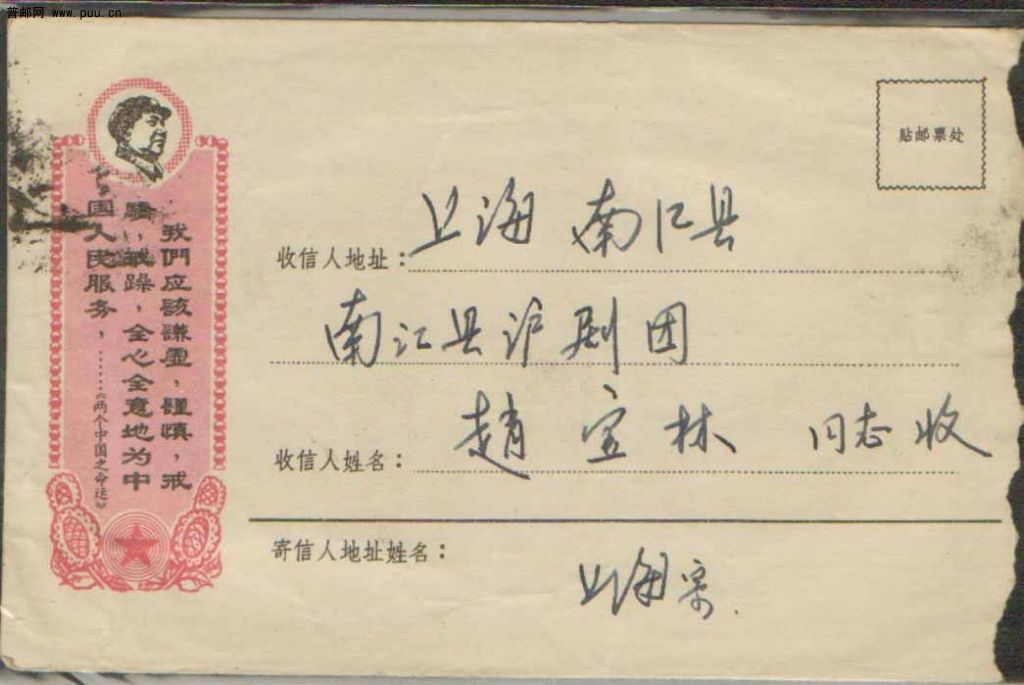 普邮网 www.puu.cn
我們应該謙虛，謹慎，戒
驕，戒躁，全心全意地为中
国人民服务，……《两个中国之命运》
贴邮票处
收信人地址：上海 南汇县
南汇县沪剧团
收信人姓名：趙宝林 同志收
寄信人地址姓名：
上海寄.